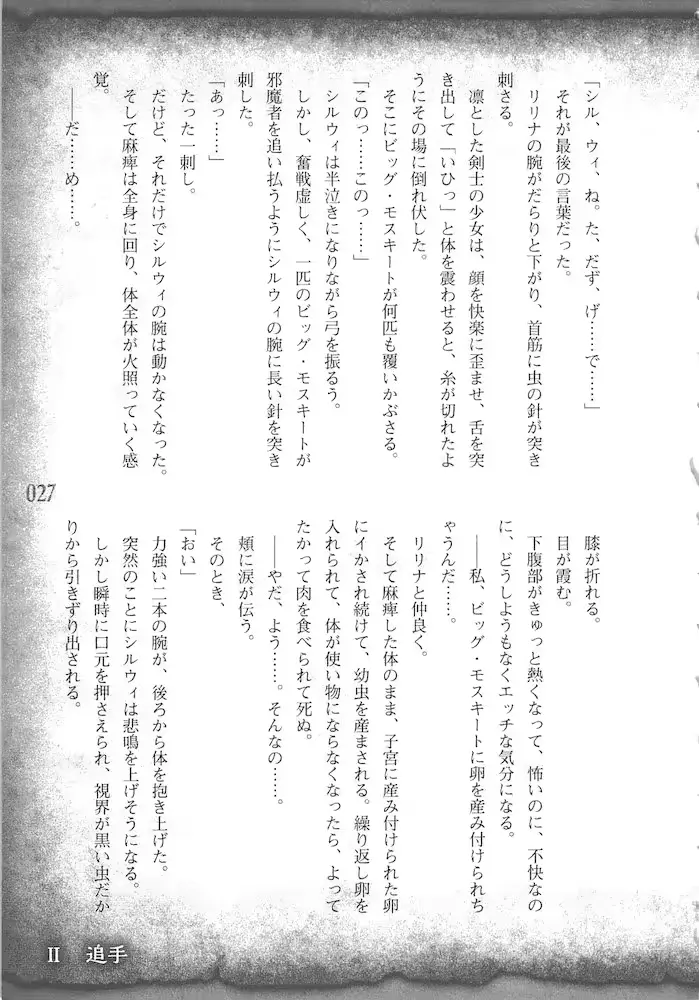 「シル、ウィ、ね。た、だず、げ……で……」
それが最後の言葉だった。
リリナの腕がだらりと下がり、首筋に虫の針が突き
刺さる。
凛とした剣士の少女は、顔を快楽に歪ませ、舌を突
き出して「いひっ」と体を震わせると、糸が切れたよ
うにその場に倒れ伏した。
そこにビッグ・モスキートが何匹も覆いかぶさる。
「このっ……このっ……」
シルウィは半泣きになりながら弓を振るう。
しかし、奮戦虚しく、一匹のビッグ・モスキートが
邪魔者を追い払うようにシルウィの腕に長い針を突き
刺した。
「あっ……」
たった一刺し。
だけど、それだけでシルウィの腕は動かなくなった。
そして麻痺は全身に回り、体全体が火照っていく感
覚。
――だ……め……。
膝が折れる。
目が霞む。
下腹部がきゅっと熱くなって、怖いのに、不快なの
に、どうしようもなくエッチな気分になる。
――私、ビッグ・モスキートに卵を産み付けられち
ゃうんだ……。
リリナと仲良く。
そして麻痺した体のまま、子宮に産み付けられた卵
にイかされ続けて、幼虫を産まされる。繰り返し卵を
入れられて、体が使い物にならなくなったら、よって
たかって肉を食べられて死ぬ。
――やだ、よう……。そんなの……。
頬に涙が伝う。
そのとき、
「おい」
力強い二本の腕が、後ろから体を抱き上げた。
突然のことにシルウィは悲鳴を上げそうになる。
しかし瞬時に口元を押さえられ、視界が黒い虫だか
りから引きずり出される。
027
II 追手